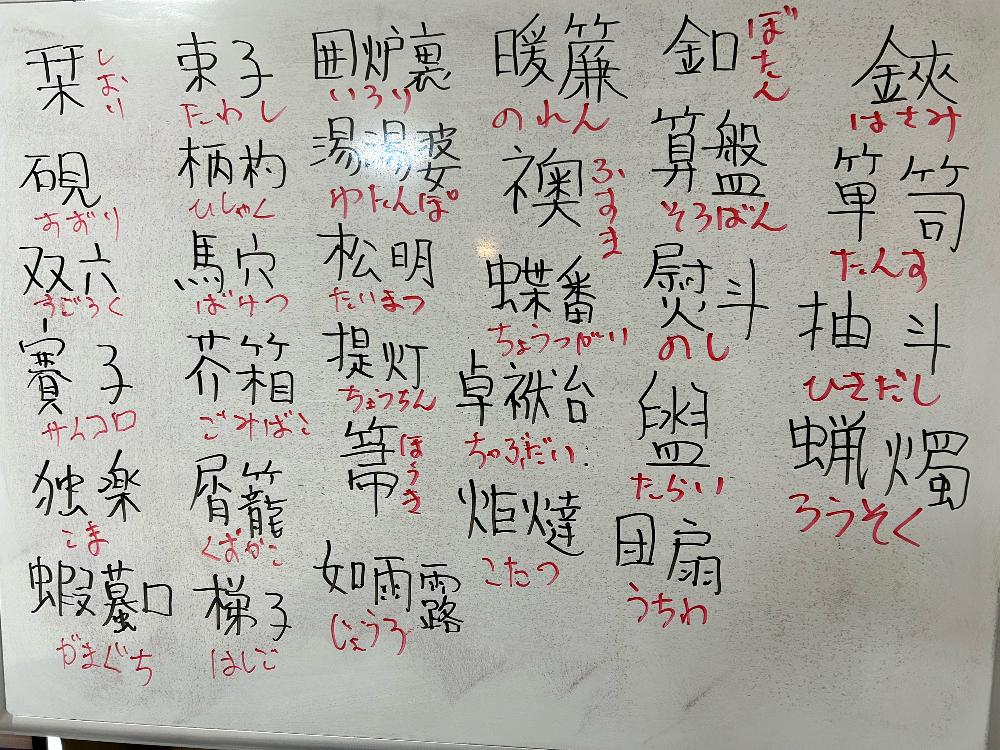 鋏
はさみ
箪笥
たんす
抽斗
ひきだし
蝋燭
ろうそく
釦
ぼたん
算盤
そろばん
熨斗
のし
盥
たらい
団扇
うちわ
暖簾
のれん
襖
ふすま
蝶番
ちょうつがい
卓袱台
ちゃぶだい
炬燵
こたつ
囲炉裏
いろり
湯湯婆
ゆたんぽ
松明
たいまつ
提灯
ちょうちん
箒
ほうき
如雨露
じょうろ
束子
たわし
柄杓
ひしゃく
馬穴
ばけつ
芥箱
ごみばこ
屑籠
くずかご
梯子
はしご
栞
しおり
硯
すずり
双六
すごろく
賽子
サイコロ
独楽
こま
蝦蟇口
がまぐち